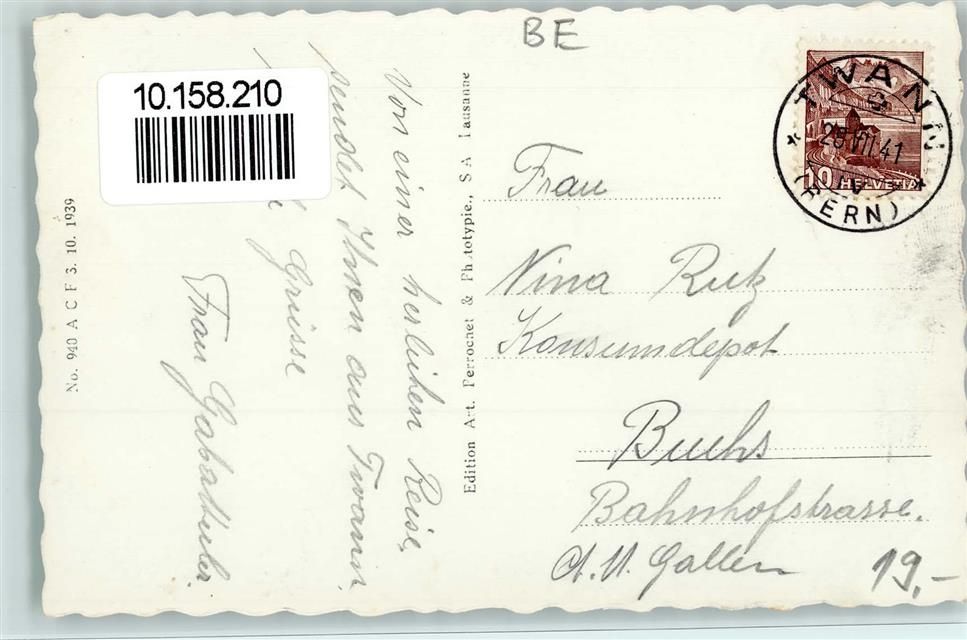 BE
10.158.210
No. 940 A C F 3. 10. 1939
Von einer herlichen Reise,
sendet Ihnen aus Twann,
Grüsse
Frau
Edition Art. Perrochet & Phototypie., S.A. Lausanne
TWANN
25.VII.41
IV
(BERN)
10 HELVETIA
Frau
Nina Rutz
Konsumdepot
Buchs
Bahnhofstrasse.
Ct. St. Gallen
19.-